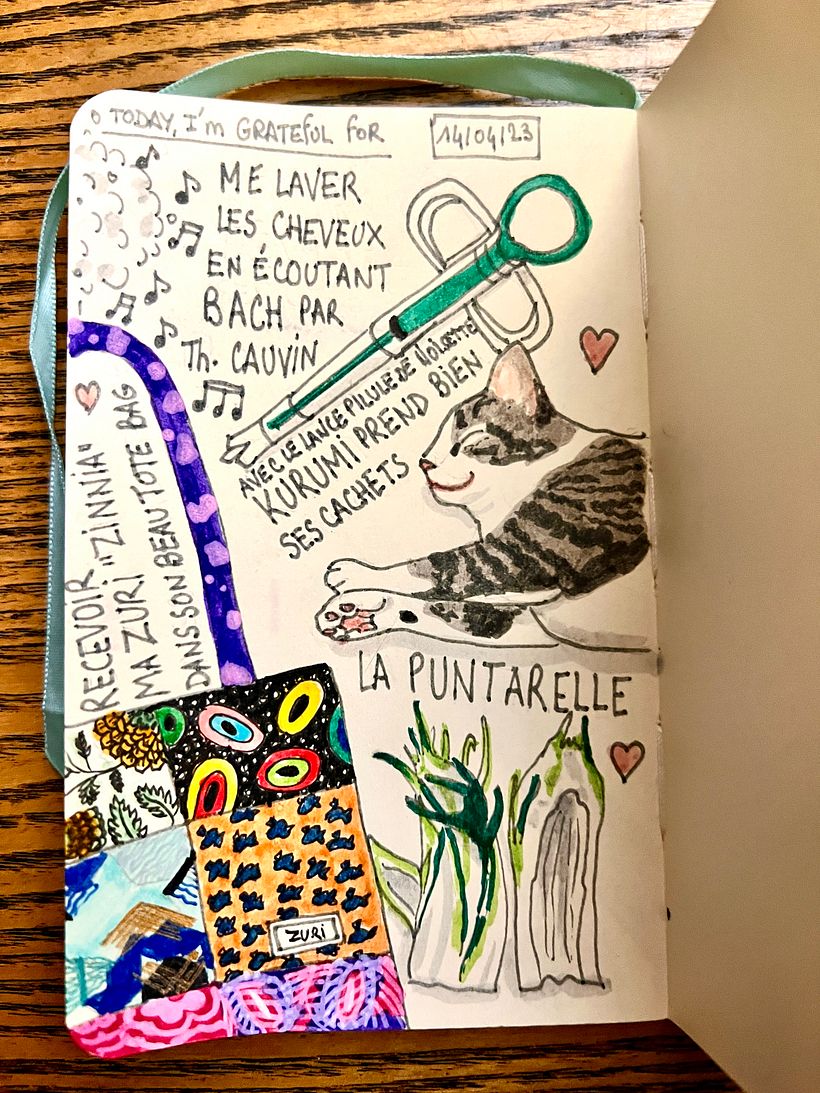 TODAY, I'm GRATEFUL FOR
14/04/23
ME LAVER
LES CHEVEUX
EN ÉCOUTANT
BACH PAR
Th. CAUVIN
AVEC LE LANCE PILULE DE DOLCETTE
KURUMI PREND BIEN
SES CACHETS
RECEVOIR "ZINNIA"
MA ZURI
DANS SON BEAU TOTE BAG
LA PUNTARELLE
ZURI